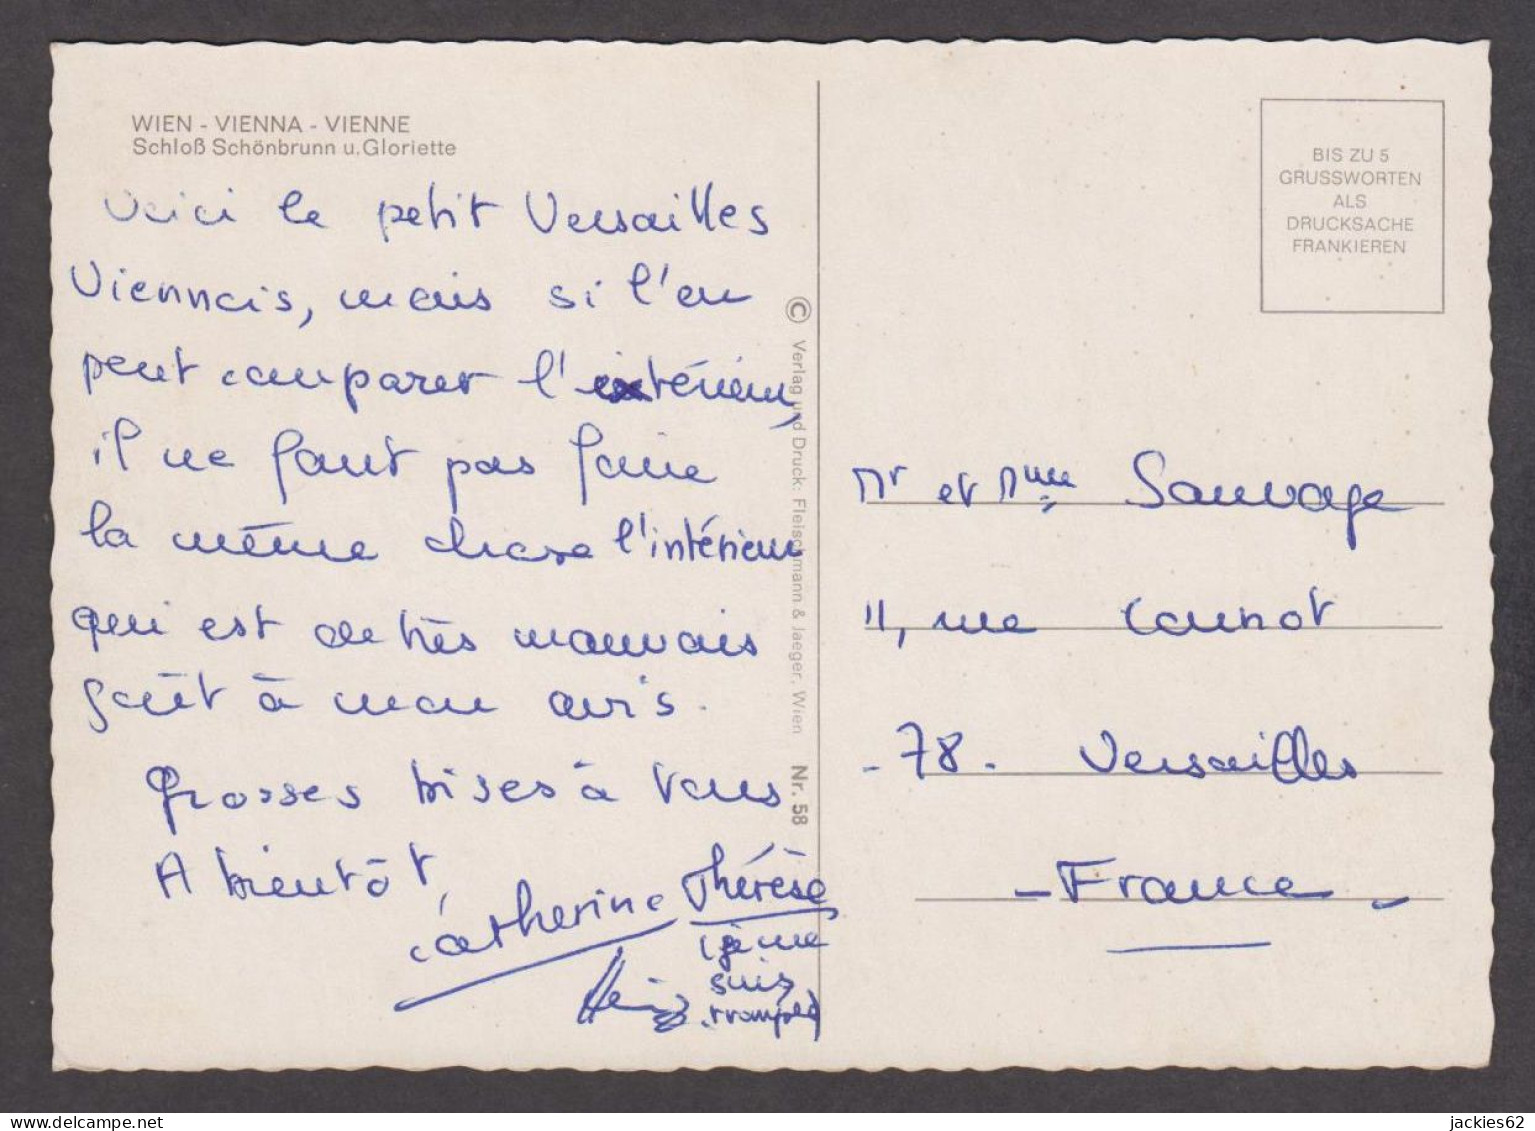 WIEN - VIENNA - VIENNE
Schloß Schönbrunn u. Gloriette
Voici le petit Versailles
Viennois, mais si l'on
peut comparer l'extérieur,
il ne faut pas faire
la même chose l'intérieur
qui est de très mauvais
goût à mon avis.
Grosses bises à vous
A bientôt,
Catherine Thérèse
(je me
suis
trompée)
Heinz
© Verlag und Druck: Fleischmann & Jaeger, Wien Nr. 58
BIS ZU 5
GRUSSWORTEN
ALS
DRUCKSACHE
FRANKIEREN
Mr et Mme Sauvage
11, rue Carnot
- 78 - Versailles
- France -
jackies62
delcampe.net